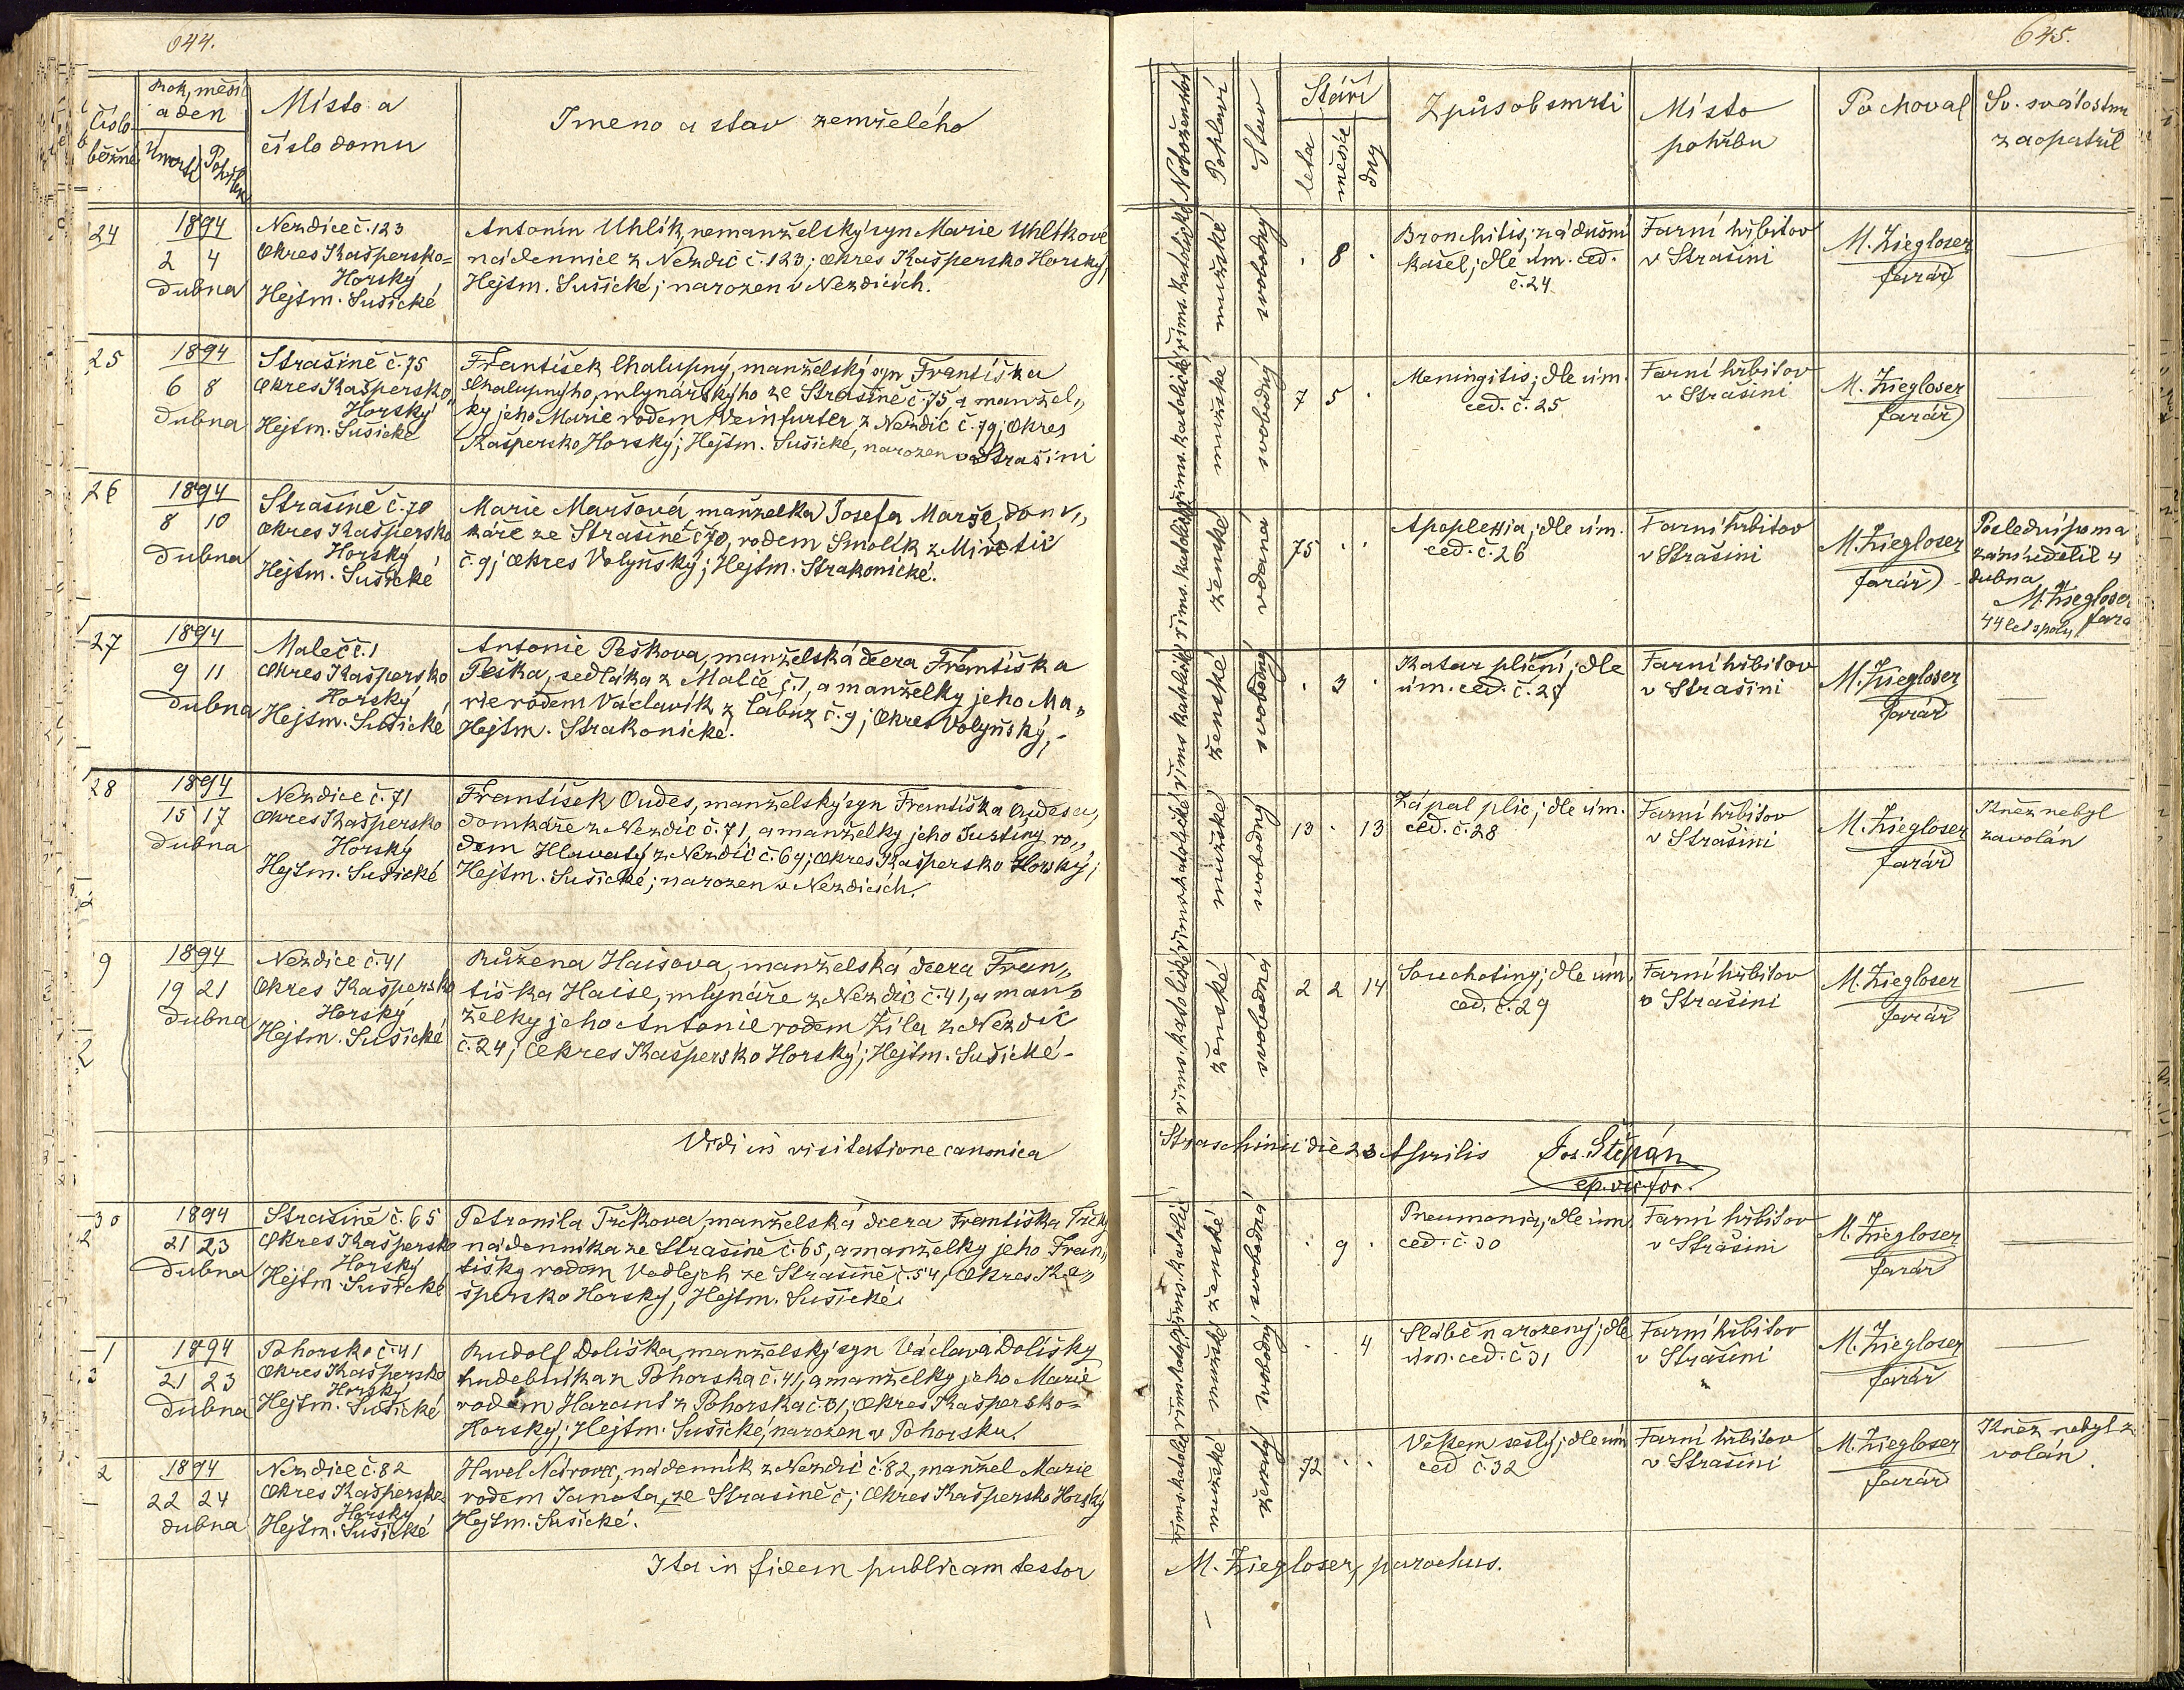 644.
Číslo běžné
Rok, měsíc a den
Úmrtí
Pohřbu
Místo a
číslo domu
Jmeno a stav zemřelého
24
1894
2 4
dubna
Nezdice č. 123
Okres Kašpersko=
Horský
Hejtm. Sušické
Antonín Uhlík, nemanželský syn Marie Uhlíkové
nádennice z Nezdic č. 123; okres Kašpersko Horský,
Hejtm. Sušické; narozen v Nezdicích.
25
1894
6 8
Dubna
Strašině č. 75
Okres Kašpersko„
Horský
Hejtm. Sušické
František Chalupný, manželský syn Františka
Chalupnýho, mlynářskýho ze Strašině č. 75 a manžel„
ky jeho Marie rodem Weinfurter, z Nezdic č. 79; Okres
Kašpersko Horský; Hejtm. Sušické, narozen v Strašini
26
1894
8 10
Dubna
Strašině č. 70
Okres Kašpersko
Horský
Hejtm. Sušické
Marie Maršová manželka Josefa Marše, dom„
káře ze Strašině č. 70, rodem Smolík z
č. 9; Okres Volyňský; Hejtm. Strakonické.
27
1894
9 11
Dubna
Maleč č. 1
Okres Kašpersko
Horský
Hejtm. Sušické
Antonie Peškova, manželská dcera Františka
Peška, sedláka z Malče č. 1, a manželky jeho Ma„
rie rodem Václavík z Čabuz č. 9; Okres Volyňský,
Hejtm. Strakonické.
28
1894
15 17
Dubna
Nezdice č. 71
Okres Kašpersko
Horský
Hejtm. Sušické
František Oudes, manželský syn Františka Oudesa,
domkáře z Nezdic č. 71, a manželky jeho Justiny ro„
dem Hlavatý z Nezdic č. 69; Okres Kašpersko Horský;
Hejtm. Sušické; narozen v Nezdicích.
9
1894
19 21
Dubna
Nezdice č. 41
Okres Kašpersko
Horský
Hejtm. Sušické
Růžena Haisova, manželská dcera Fran„
tiška Haise, mlynáře z Nezdic č. 41, a man„
želky jeho Antonie rodem Žíla z Nezdic
č. 24; Okres Kašpersko Horský; Hejtm. Sušické.
Vidi in visitatione canonica
30
1894
21 23
Dubna
Strašině č. 65
Okres Kašpersko
Horský
Hejtm. Sušické
Petronila Trčkova, manželská dcera Františka Trčky
nádenníka ze Strašině č. 65, a manželky jeho Fran„
tišky rodem Vodlejch ze Strašině č. 54, Okres Ka„
špersko Horský, Hejtm. Sušické.
1
1894
21 23
Dubna
Pohorsko č. 41
Okres Kašpersko
Horský
Hejtm. Sušické
Rudolf Doliška, manželský syn Václava Dolišky
hudebníka z Pohorska č. 41, a manželky jeho Marie
rodem Harant z Pohorska č. 31; Okres Kašpersko=
Horský; Hejtm. Sušické, narozen v Pohorsku.
2
1894
22 24
dubna
Nezdice č. 82
Okres Kašpersko
Horský
Hejtm. Sušické
Havel, nádenník z Nezdic č. 82, manžel Marie
rodem Janota, ze Strašině č; Okres Kašpersko Horský
Hejtm. Sušické.
Ita in fidem publicam testor
645.
Náboženství
Pohlaví
Stav
Stáří
leta
měsíce
dny
Způsob smrti
Místo
pohřbu
Pochoval
Sv. svátostmi
zaopatřil
říms. katolické
mužské
svobodný
. 8 .
Bronchitis, zádušní
kašel; dle úm. ced.
č. 24
Farní hřbitov
v Strašini
M. Ziegloser
farář
—
říms. katolické
mužské
svobodný
7 5 .
Meningitis; dle úm.
ced. č. 25
Farní hřbitov
v Strašini
M. Ziegloser
farář
—
říms. katolické
ženské
vdaná
75 . .
Apoplexia; dle úm.
ced. č. 26
Farní hřbitov
v Strašini
M. Ziegloser
farář
Poslední poma
zání udělil 4
dubna
M. Ziegloser
fara
44 let spolu
říms. katolické
ženské
svobodný
. 3 .
Katar plicní; dle
úm. ced. č. 27
Farní hřbitov
v Strašini
M. Ziegloser
farář
—
říms. katolické
mužské
svobodný
13 . 13
Zápal plic; dle úm.
ced. č. 28
Farní hřbitov
v Strašini
M. Ziegloser
farář
Kněz nebyl
zavolán
říms. katolické
ženské
svobodná
2 2 14
Souchotiny; dle úm.
ced. č. 29
Farní hřbitov
v Strašini
M. Ziegloser
farář
—
Straschinii die 23 Aprilis Jos. Štěpán
ep. vic. for.
říms. katolic
ženské
svobodná
. 9 .
Pneumonia; dle úm.
ced. č. 30
Farní hřbitov
v Strašini
M. Ziegloser
farář
—
říms. katol.
mužské
svobodný
. . 4
Slabě narozený; dle
úm. ced. č. 31
Farní hřbitov
v Strašini
M. Ziegloser
farář
—
říms. katol.
mužské
ženatý
72 . .
Věkem sešlý; dle úm
ced č. 32
Farní hřbitov
v Strašini
M. Ziegloser
farář
Kněz nebyl z
volán.
M. Ziegloser, parochus.